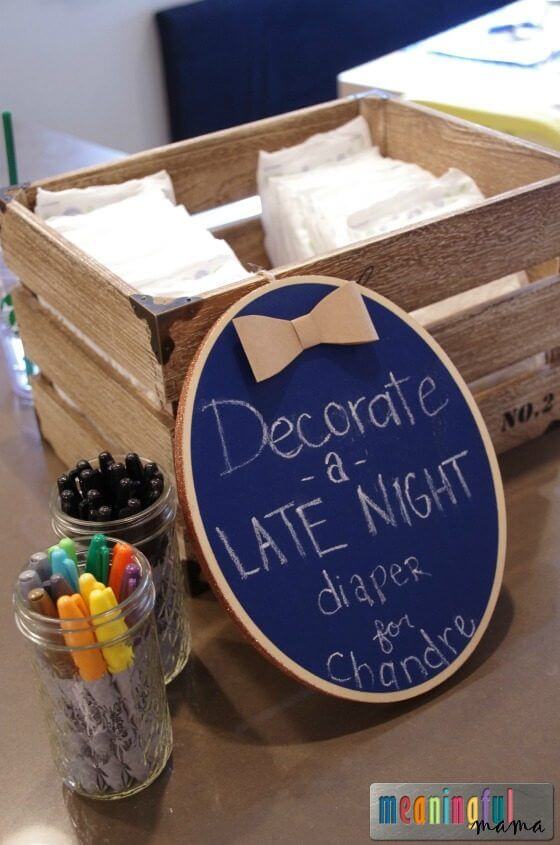 NO. 2
Decorate
-a-
LATE NIGHT
diaper
for
Chandre
meaningful
mama